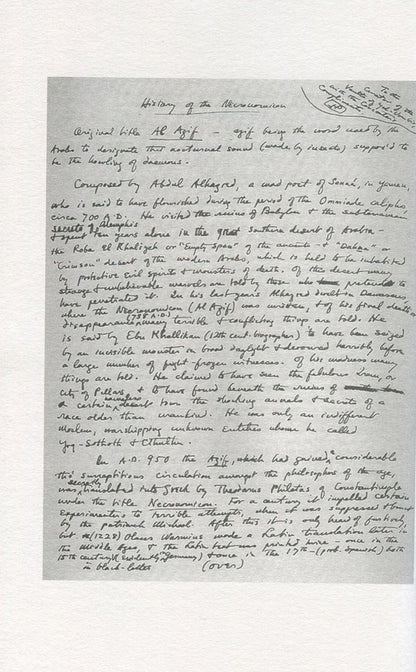 To the
Curator of the
Vaults of Yoh-
with the
Compliments
History of the Necronomicon
Original title Al Azif — azif being the word used by the
Arabs to designate that nocturnal sound (made by insects) suppos'd to
be the howling of daemons.
Composed by Abdul Alhazred, a mad poet of Sanaá, in Yemen,
who is said to have flourished during the period of the Ommiade caliphs,
circa 700 A.D. He visited the ruins of Babylon & the subterranean
secrets of Memphis
& spent ten years alone in the great southern desert of Arabia —
the Roba El Khaliyeh or "Empty Space" of the ancients — & "Dahna" or
"Crimson" desert of the modern Arabs, which is held to be inhabited
by protective evil spirits & monsters of death. Of this desert many
strange & unbelievable marvels are told by those who pretend to
have penetrated it. In his last years Alhazred dwelt in Damascus,
where the Necronomicon (Al Azif) was written, & of his final death or
disappearance (738 A.D.) many terrible & conflicting things are told. He
is said by Ebn Khallikan (12th cent. biographer) to have been seized
by an invisible monster in broad daylight & devoured horribly before
a large number of fright-frozen witnesses. Of his madness many
things are told. He claimed to have seen the fabulous Irem, or
City of Pillars, & to have found beneath the ruins of
a certain nameless desert town the shocking annals & secrets of a
race older than mankind. He was only an indifferent
Moslem, worshipping unknown Entities whom he called
Yog-Sothoth & Cthulhu.
In A.D. 950 the Azif, which had gained a considerable
tho' surreptitious circulation amongst the philosophers of the age,
was secretly translated into Greek by Theodorus Philetas of Constantinople
under the title Necronomicon. For a century it impelled certain
experimenters to terrible attempts, when it was suppressed & burnt
by the patriarch Michael. After this it is only heard of furtively,
but (1228) Olaus Wormius made a Latin translation later in
the Middle Ages, & the Latin text was printed twice — once in the
15th century in black-letter (evidently in Germany) & once in the 17th — (prob. Spanish) both
(over)